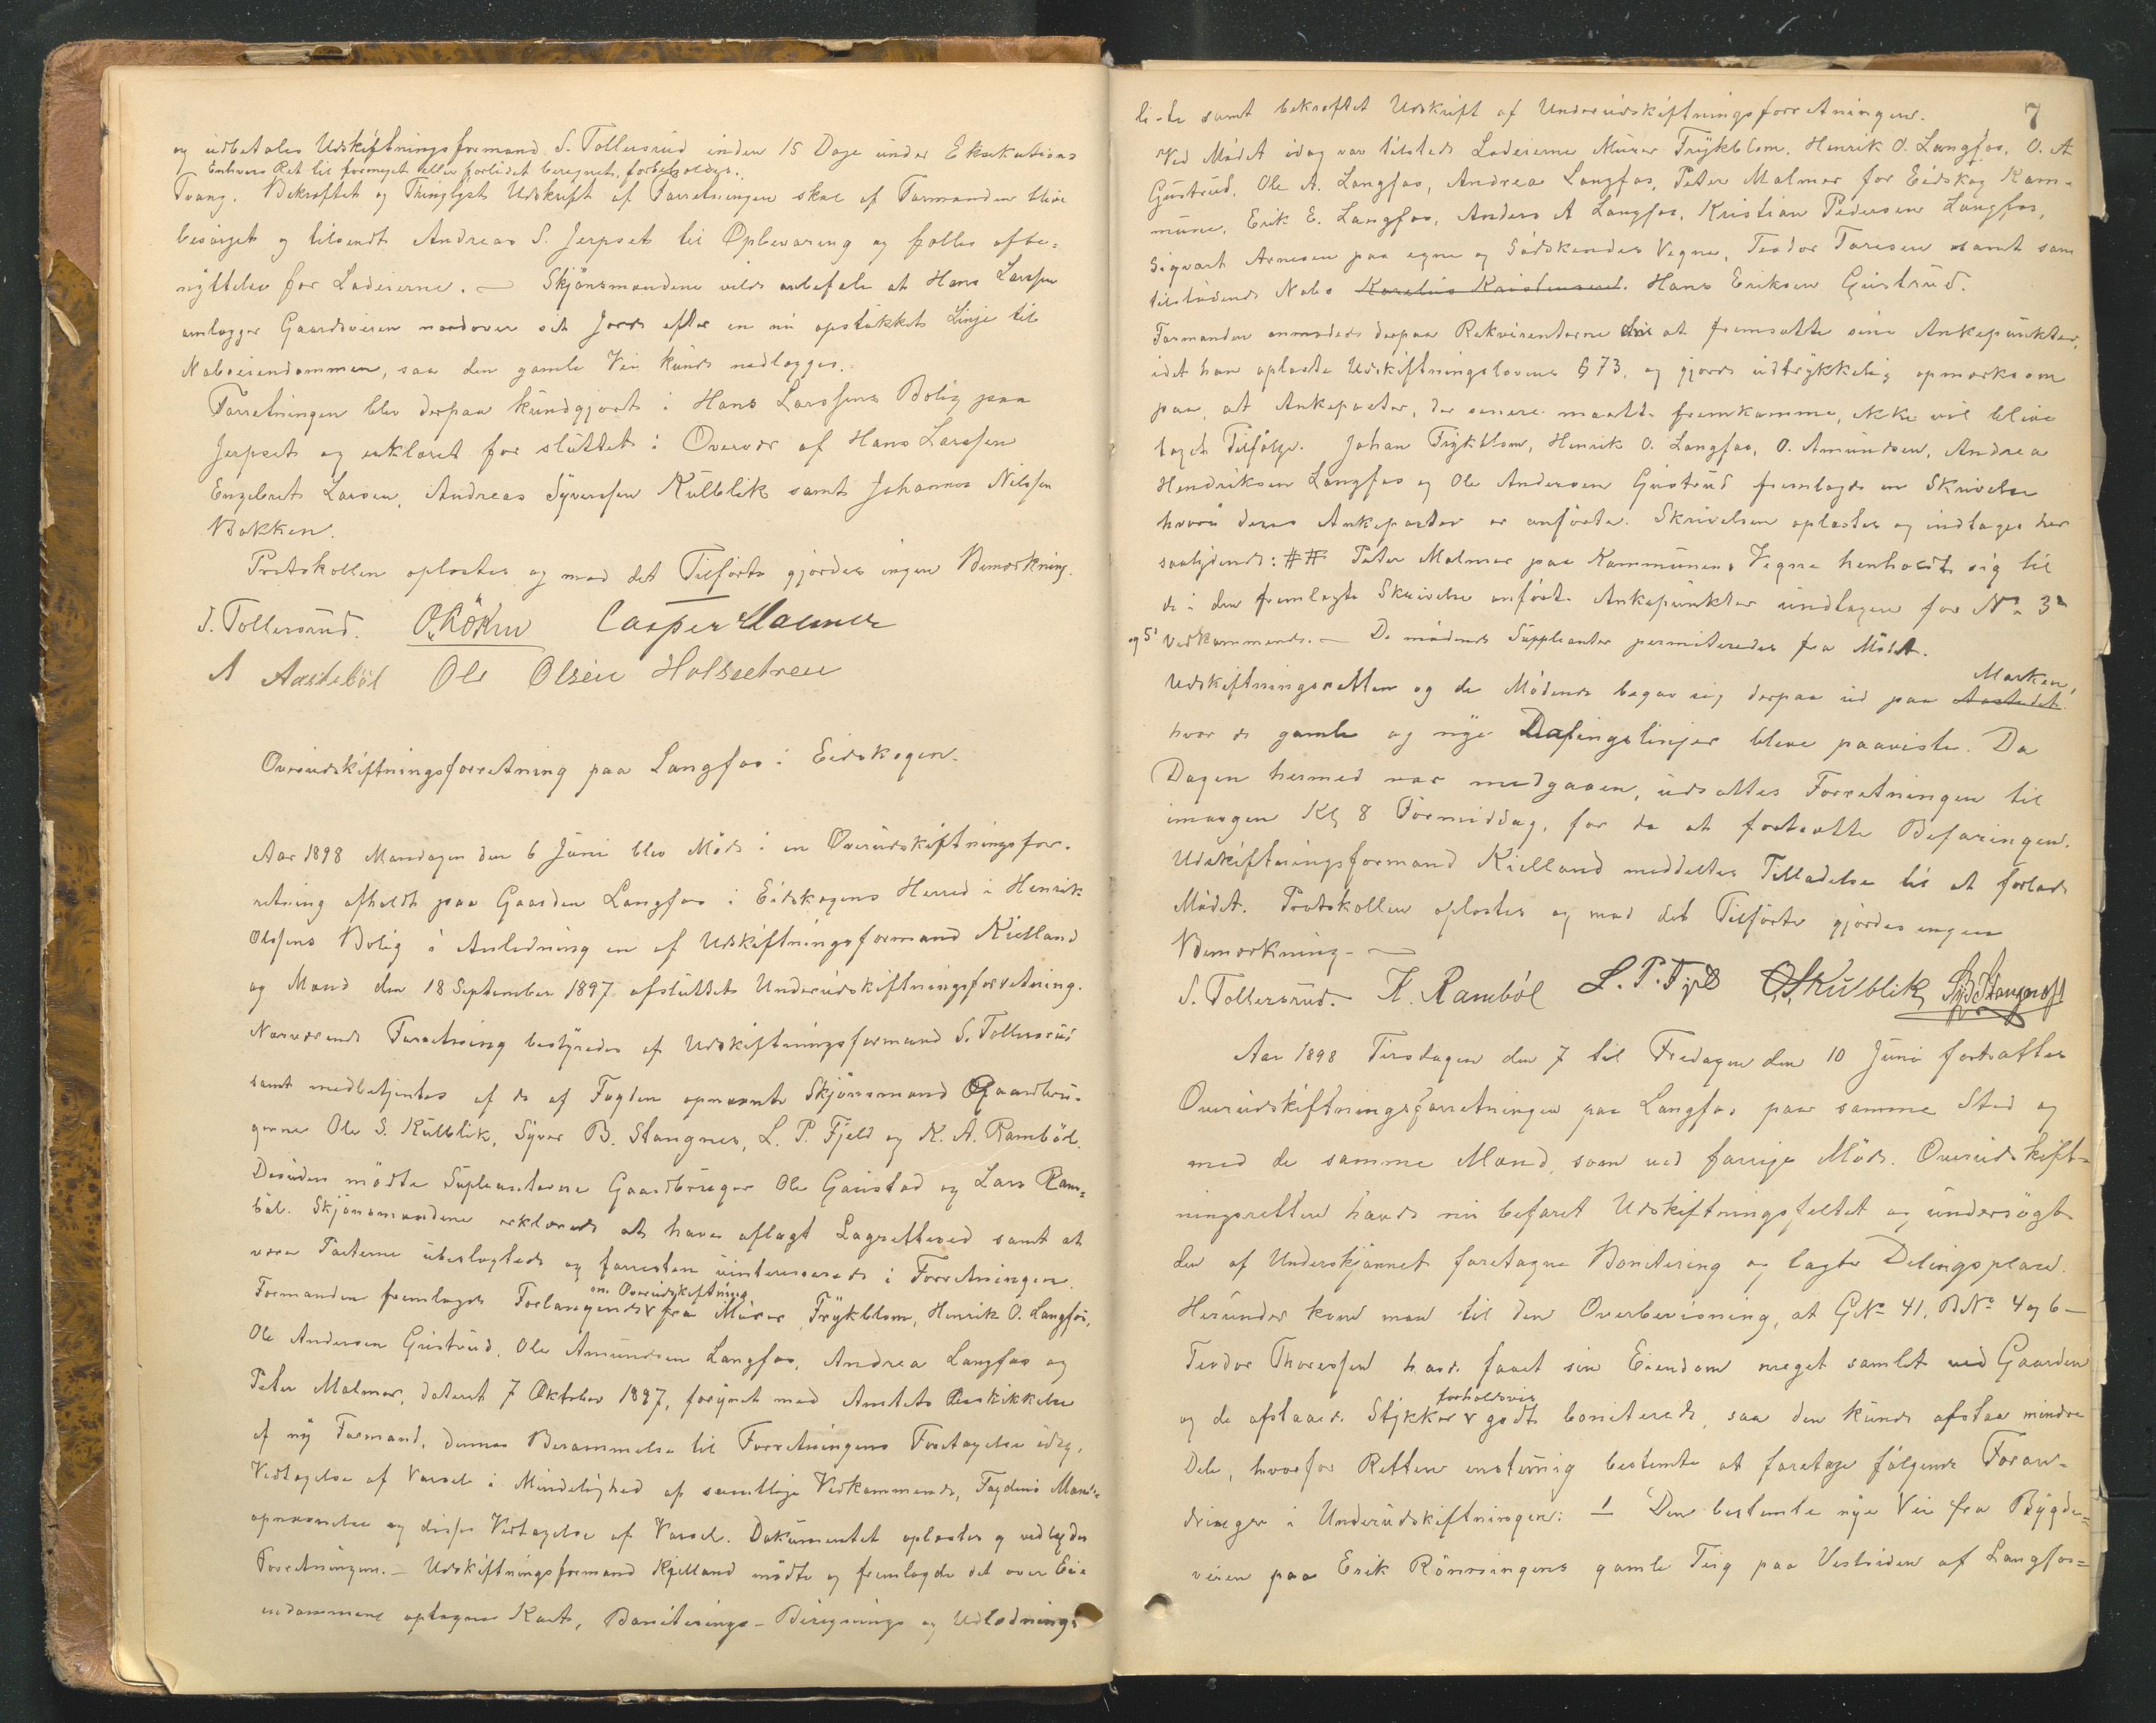 og udbetales Udskiftningsformand S. Tollersrud inden 15 Dage under Eksekutions
Enhvers Ret til formeget eller forlidet beregnet, forbeholdes.
Tvang. Bekræftet og Thinglyst Udskrift af Forretningen skal af Formanden blive
besørget og tilsendt Andreas S. Jerpset til Opbevaring og fælles afbe-
nyttelse for Lodeierne. — Skjönsmændene vilde anbefale at Hans Larssen
omlægger Gaardsveien nordover sit Jorde efter en nu opstukket Linje til
Naboeiendommen, saa den gamle Vei kunde nedlægges.
Forretningen blev derpaa kundgjort i Hans Larssens Bolig paa
Jerpset og erklæret for sluttet i Overvær af Hans Larssen
Engebret Larsen, Andreas Syverssen Kulblik samt Johannes Nilssen
Bakken.
Protokollen oplæstes og mod det Tilförte gjordes ingen Bemærkning.
S. Tollersrud. O. Röken Casper Malmer
A Aastebøl Ole Olsen Holsætren
Overudskiftningsforretning paa Langfos i Eidskogen.
Aar 1898 Mandagen den 6 Juni blev Möde i en Overudskiftningsfor-
retning afholdt paa Gaarden Langfos i Eidskogens Herred i Henrik
Olssens Bolig i Anledning en af Udskiftningsformand Kielland
og Mænd den 18 September 1897 afsluttet Underudskiftningsforretning.
Nærværende Forretning bestyredes af Udskiftningsformand S. Tollersrud
samt medbetjentes af de af Fogden opnævnte Skjönsmænd Gaardbru-
gerne Ole S. Kulblik, Syver B. Stangnes, L. P. Fjeld og K. A. Ramböl.
Desuden mödte Supleanterne Gaardbruger Ole Gaustad og Lars Ram-
böl. Skjönsmændene erklærede at have aflagt Lagretteed samt at
være Parterne ubeslægtede og forresten uinteresserede i Forretningen.
om Overudskiftning
Formanden fremlagde Forlangende v fra Murer Frykblom, Henrik O. Langfos,
Ole Andersen Gustrud, Ole Amundsen Langfos, Andrea Langfos og
Peter Malmer, dateret 7 Oktober 1897, forsynet med Amtets Beskikkelse
af ny Formand, dennes Berammelse til Forretningens Foretagelse idag,
Vedtagelse af Varsel i Mindelighed af samtlige Vedkommende, Fogdens Mands-
opnævnelse og disses Vedtagelse af Varsel. Dokumentet oplæstes og vedlægdes
Forretningen. — Udskiftningsformand Kjelland mödte og fremlagde det over Ei-
endommene optagne Kart, Boniterings- Beregnings og Udlodnings
7
li-te samt bekræftet Udskrift af Underudskiftningsforretningen.
Ved Mödet idag var tilstede Lodeierne Murer Frykblom, Henrik O. Langfos, O. A
Gustrud, Ole A. Langfos, Andrea Langfos, Peter Malmer for Eidskog Kom-
mune, Erik E. Langfos, Anders A Langfos, Kristian Pedersen Langfos,
Sigvart Arnesen paa egne og Södskendes Vegne, Teodor Toresen samt som
tilstödende Nabo Karelius Kristensen. Hans Eriksen Gustrud.
Formanden anmodede derpaa Rekvirenterne om at fremsætte sine Ankepunkter,
idet han oplæste Udskiftningslovens § 73, og gjorde udtrykkelig opmerksom
paa, at Ankeposter, der senere maatte fremkomme, ikke vil blive
taget Tilfölge. Johan Frykblom, Henrik O. Langfos, O. Amundsen, Andrea
Hendriksen Langfos og Ole Andersen Gustrud fremlagde en Skrivelse
hvori deres Ankeposter er anförte. Skrivelsen oplæstes og indtages her
saalydende: ## Peter Malmer paa Kommunens Vegne henholdt sig til
de i den fremlagte Skrivelse anförte Ankepunkter undtagen for No 3
og 5 Vedkommende. — De mödende Suppleanter permiteredes fra Mödet.
Marken,
Udskiftningsretten og de Mödende begav sig derpaa ud paa Aastedet
hvor de gamle og nye Delingslinjer bleve paaviste. Da
Dagen hermed var medgaaen, udsattes Forretningen til
imorgen Kl 8 Formiddag, for da at fortsætte Befaringen.
Udskiftningsformand Kielland meddeltes Tilladelse til at forlade
Mödet. Protokollen oplæstes og mod det Tilförte gjordes ingen
Bemærkning. —
S. Tollersrud. K. Ramböl L. P. Fjeld O S Kulblik S B Stangnes
Aar 1898 Tirsdagen den 7 til Fredagen den 10 Juni fortsattes
Overudskiftningsforretningen paa Langfos paa samme Sted og
med de samme Mænd, som ved forrige Möde. Overudskift-
ningsretten havde nu befaret Udskiftningsfeltet og undersögt
den af Underskjönnet foretagne Bonitering og lagte Delingsplan.
Herunder kom man til den Overbevisning, at GNo 41, BNo 4 og 6 —
Teodor Thoressen havde faaet sin Eiendom meget samlet ved Gaarden
forholdsvis
og de afstaaede Stykker v godt boniterede, saa den kunde afstaa mindre
Dele, hvorfor Retten enstemig bestemte at foretage fölgende Foran-
dringer i Underudskiftningen: 1 Den bestemte nye Vei fra Bygde-
veien paa Erik Rönningens gamle Teig paa Vestsiden af Langfos-